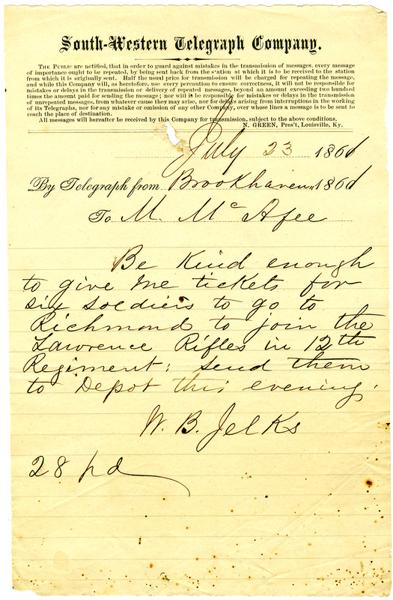 South-Western Telegraph Company.
The Public are notified, that in order to guard against mistakes in the transmission of messages, every message
of importance ought to be repeated, by being sent back from the station at which it is to be received to the station
from which it is originally sent. Half the usual price for transmission will be charged for repeating the message,
and while this Company will, as heretofore, use every precaution to ensure correctness, it will not be responsible for
mistakes or delays in the transmission or delivery of repeated messages, beyond an amount exceeding two hundred
times the amount paid for sending the message; nor will it be responsible for mistakes or delays in the transmission
of unrepeated messages, from whatever cause they may arise, nor for delays arising from interruptions in the working
of its Telegraphs, nor for any mistake or omission of any other Company, over whose lines a message is to be sent to
reach the place of destination.
All messages will hereafter be received by this Company for transmission, subject to the above conditions.
N. GREEN, Pres't, Louisville, Ky.
July 23 1861
By Telegraph from Brookhaven 1861
To M. McAfee
Be Kind enough
to give me tickets for
six soldiers to go to
Richmond to join the
Lawrence Rifles in 12th
Regiment; send them
to Depot this evening.
W. B. Jelks
28 pd